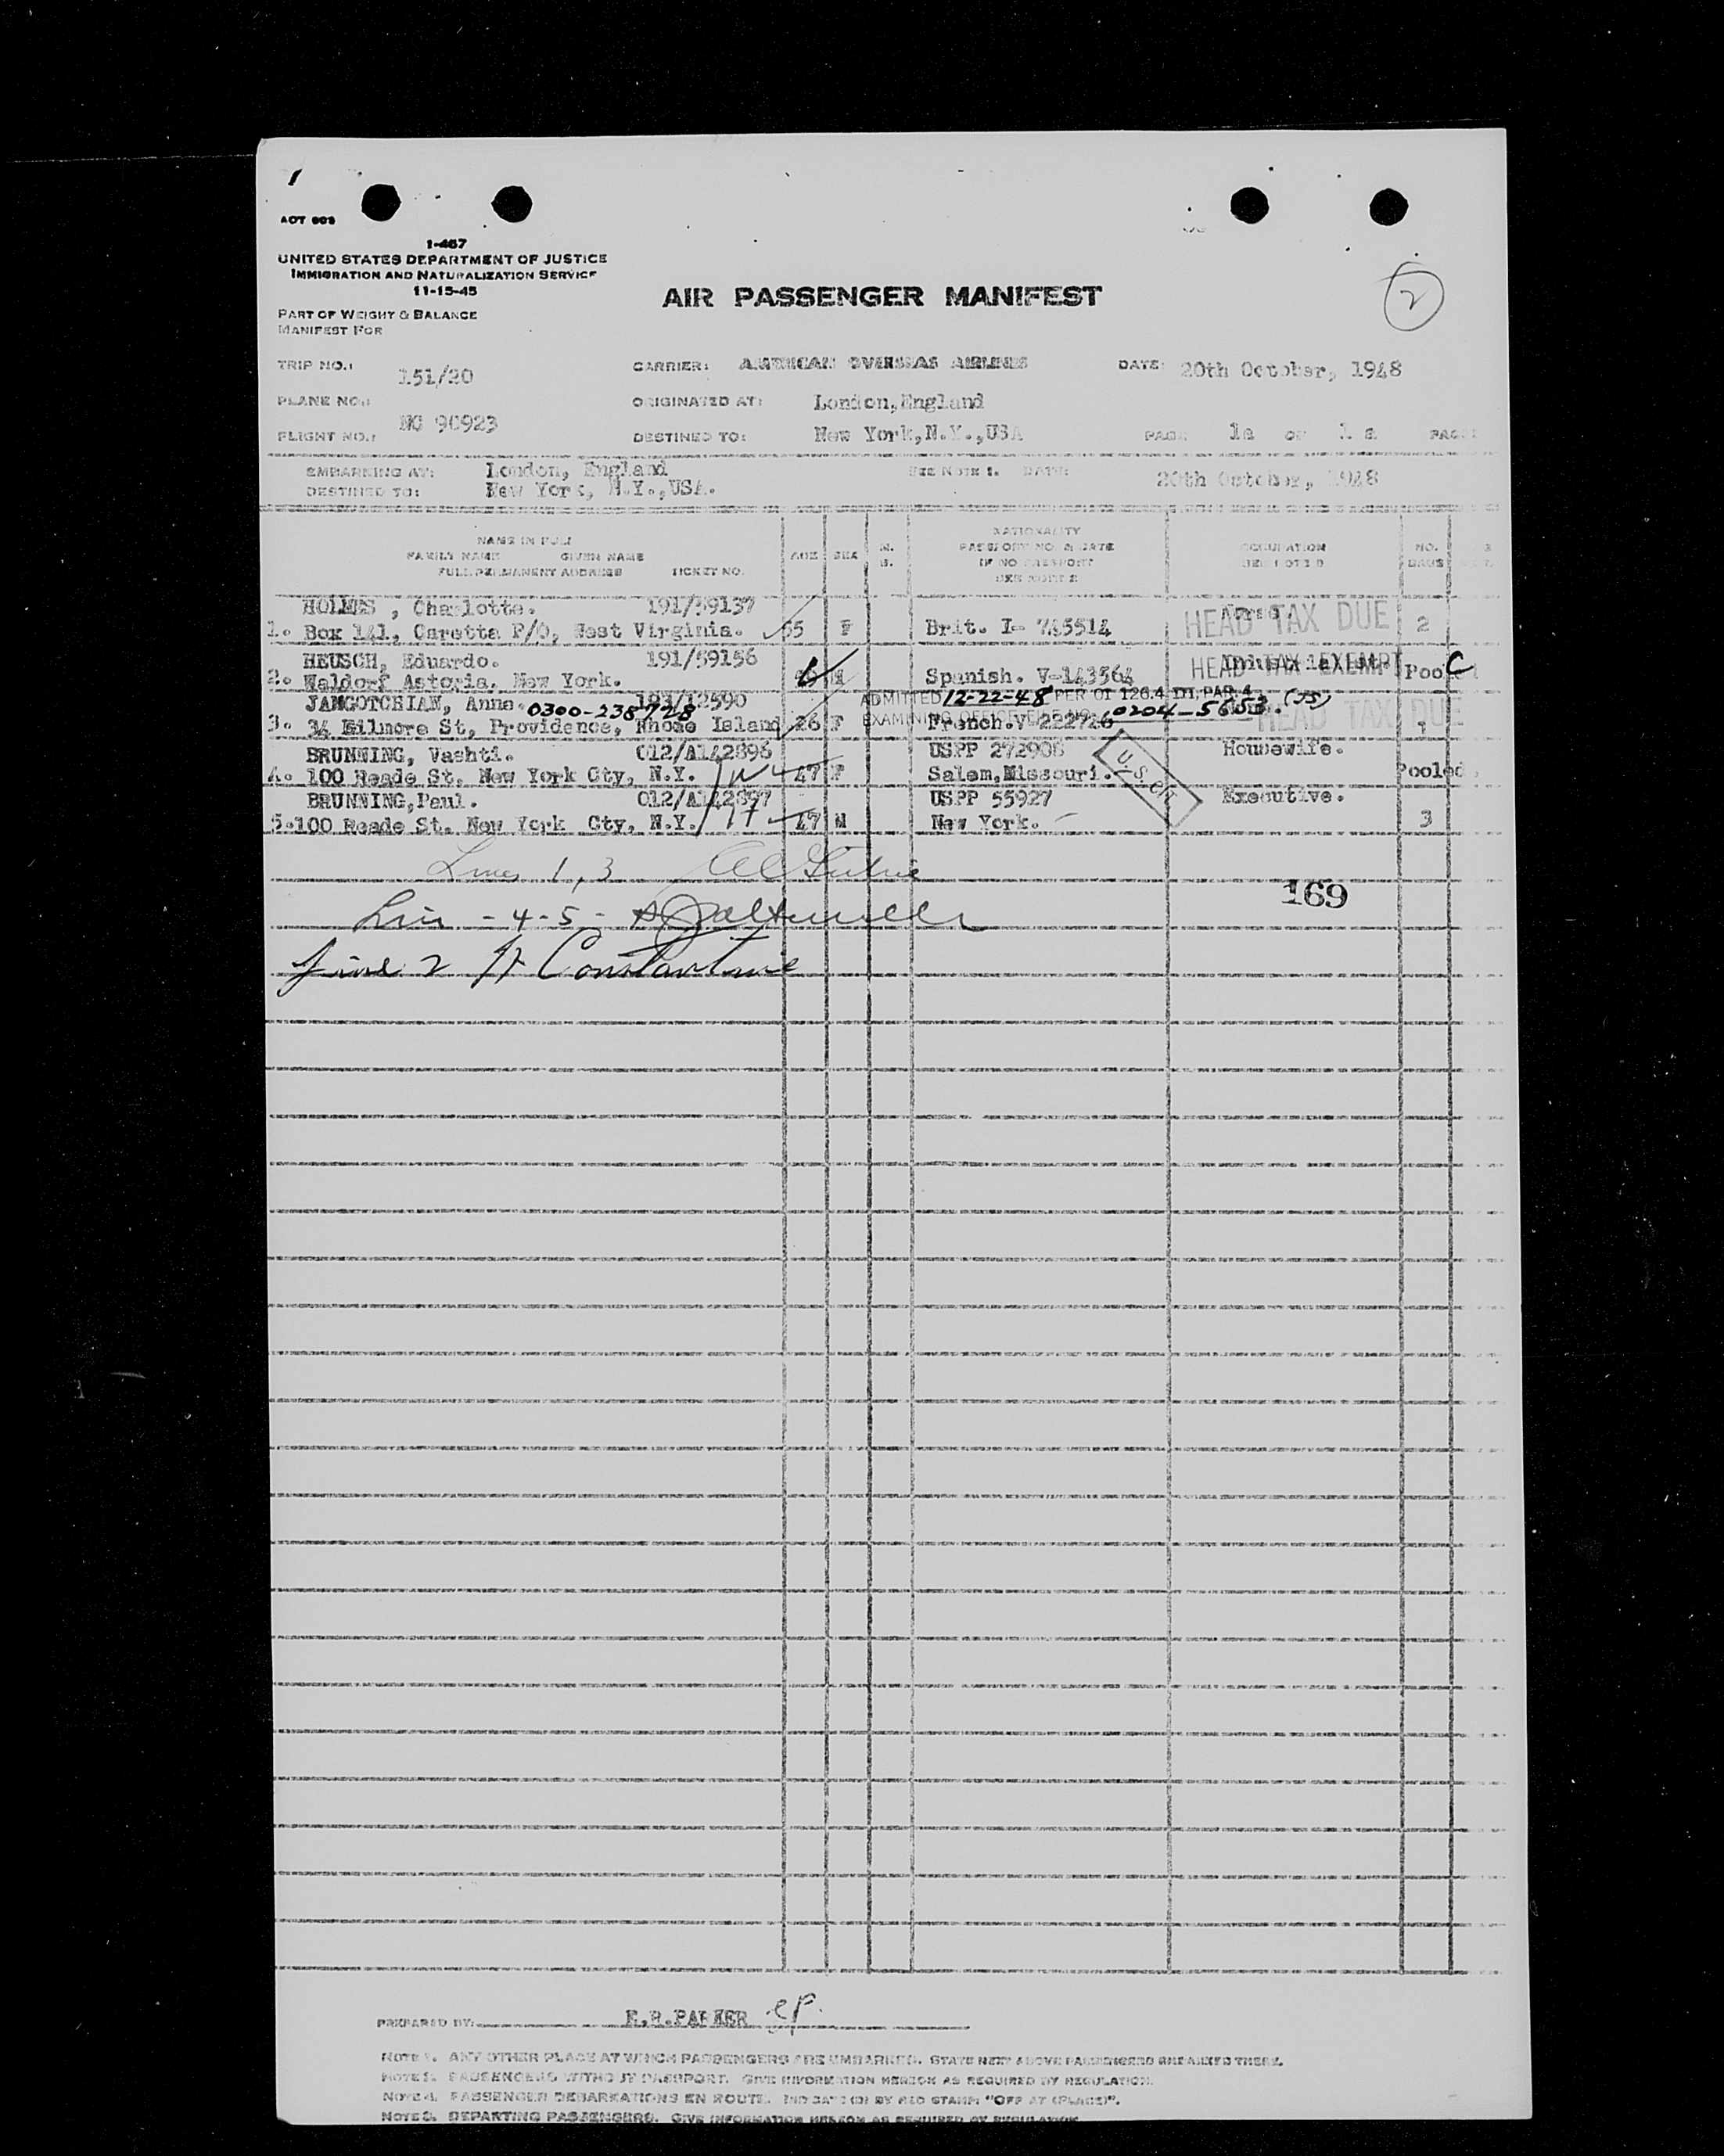 1
AOT 803
1-467
UNITED STATES DEPARTMENT OF JUSTICE
IMMIGRATION AND NATURALIZATION SERVICE
11-15-45
AIR PASSENGER MANIFEST
2
PART OF WEIGHT & BALANCE
MANIFEST FOR
TRIP NO.: 151/20 CARRIER: AMERICAN OVERSEAS AIRLINES DATE: 20th October, 1948
PLANE NO.: NC 90923 ORIGINATED AT: London,England
FLIGHT NO.: DESTINED TO: New York,N.Y.,USA PAGE 1a OF 1 a PAGES
EMBARKING AT: London, England SEE NOTE 1. DATE: 20th October, 1948
DESTINED TO: New York, N.Y.,USA.
NAME IN FULL NATIONALITY
FAMILY NAME GIVEN NAME AGE SEX M. PASSPORT NO. & DATE OCCUPATION NO.
S. IF NO PASSPORT SEE NOTE 3 BAGS
FULL PERMANENT ADDRESS TICKET NO. SEE NOTE 2
HOLMES , Charlotte. 191/59137 HEAD TAX DUE
1. Box 141, Caretta P/O, West Virginia. 55 F Brit. I- 745514 2
HEUSCH, Eduardo. 191/59156 HEAD TAX EXEMPT Industrialist
2. Waldorf Astoria. New York. M Spanish. V-143564 Poo C
JANGOTCHIAN, Anna. 0300-238728 191/12590 ADMITTED 12-22-48 PER OI 126.4 D1, PAR. 4
EXAMINING OFFICE FILE NO. 0204-5653. (JS)
3. 34 Gilmore St, Providence, Rhode Island 26 F French.V 222726 HEAD TAX DUE 1
BRUNNING, Vashti. 012/A142896 USPP 272908 Housewife.
4. 100 Reade St. New York Cty, N.Y. 47 F Salem,Missouri. U.S. Pooled.
BRUNNING,Paul. 012/A142897 USPP 55927 Executive.
5.100 Reade St. New York Cty, N.Y. 47 M New York. 3
Lines 1,3
169
Lin - 4-5 -
Line 2 Constantine
PREPARED BY: E.R.PARKER ep.
NOTE 1. ANY OTHER PLACE AT WHICH PASSENGERS ARE EMBARKED. STATE NEXT ABOVE PASSENGERS EMBARKED THERE.
NOTE 2. PASSENGERS WITHOUT PASSPORT. GIVE INFORMATION HEREON AS REQUIRED BY REGULATION.
NOTE 4. PASSENGER DEBARKATIONS EN ROUTE. INDICATED BY RED STAMP: "OFF AT (PLACE)".
NOTE 3. DEPARTING PASSENGERS. GIVE INFORMATION HEREON AS REQUIRED BY REGULATION